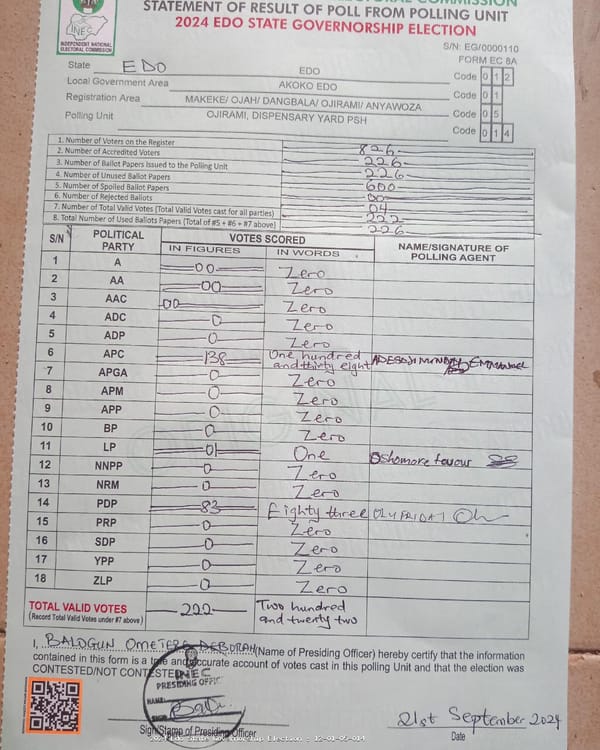 STATEMENT OF RESULT OF POLL FROM POLLING UNIT
2024 EDO STATE GOVERNORSHIP ELECTION
INEC
INDEPENDENT NATIONAL
ELECTORAL COMMISSION
S/N: EG/0000110
FORM EC 8A
State EDO EDO Code 0 1 2
Local Government Area AKOKO EDO Code 0 1
Registration Area MAKEKE/ OJAH/ DANGBALA/ OJIRAMI/ ANYAWOZA Code 0 5
Polling Unit OJIRAMI, DISPENSARY YARD PSH Code 0 1 4
1. Number of Voters on the Register 826
2. Number of Accredited Voters 226
3. Number of Ballot Papers Issued to the Polling Unit 226
4. Number of Unused Ballot Papers 600
5. Number of Spoiled Ballot Papers 00
6. Number of Rejected Ballots 04
7. Number of Total Valid Votes (Total Valid Votes cast for all parties) 222
8. Total Number of Used Ballots Papers (Total of #5 + #6 + #7 above) 226
S/N POLITICAL PARTY VOTES SCORED NAME/SIGNATURE OF POLLING AGENT
IN FIGURES IN WORDS
1 A 00 Zero
2 AA 00 Zero
3 AAC 00 Zero
4 ADC 0 Zero
5 ADP 0 Zero
6 APC 138 One hundred and thirty eight EMMANUEL
7 APGA 0 Zero
8 APM 0 Zero
9 APP 0 Zero
10 BP 0 Zero
11 LP 01 One Oshomore favour
12 NNPP 0 Zero
13 NRM 0 Zero
14 PDP 83 Eighty three
15 PRP 0 Zero
16 SDP 0 Zero
17 YPP 0 Zero
18 ZLP 0 Zero
TOTAL VALID VOTES 222 Two hundred and twenty two
(Record Total Valid Votes under #7 above)
I, BALOGUN DEBORAH (Name of Presiding Officer) hereby certify that the information
contained in this form is a true and accurate account of votes cast in this polling Unit and that the election was
CONTESTED/NOT CONTESTED
INEC
PRESIDING OFFIC
NAME
Sign/Stamp of Presiding Officer
21st September 2024
Date